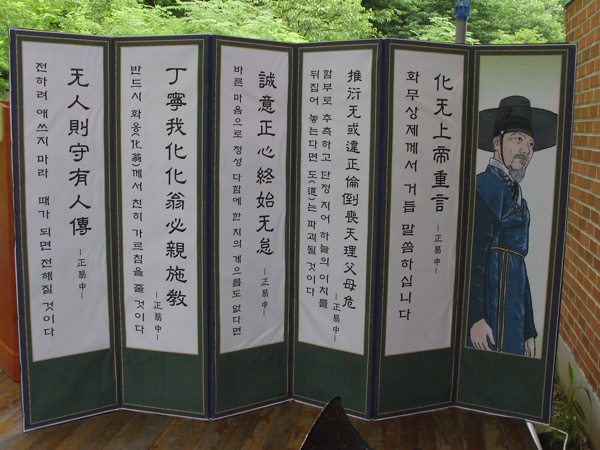 化无上帝重言 -正易中-
화무상제께서 거듭 말씀하십니다
推衍无或違正倫倒喪天理父母危 -正易中-
함부로 추측하고 단정 지어 하늘의 이치를
뒤집어 놓는다면 도(道)는 파괴될 것이다
誠意正心終始无怠 -正易中-
바른 마음으로 정성 다함에 한 치의 게으름도 없다면
丁寧我化化翁必親施敎 -正易中-
반드시 화옹(化翁)께서 친히 가르침을 줄 것이다
无人則守有人傳 -正易中-
전하려 애쓰지 마라 때가 되면 전해질 것이다